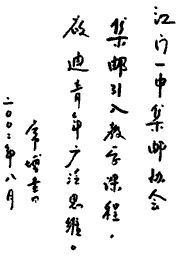 江门一中集邮协会
集邮引入教学课程，
启迪青年广泛思维。
常增书
二〇〇二年八月